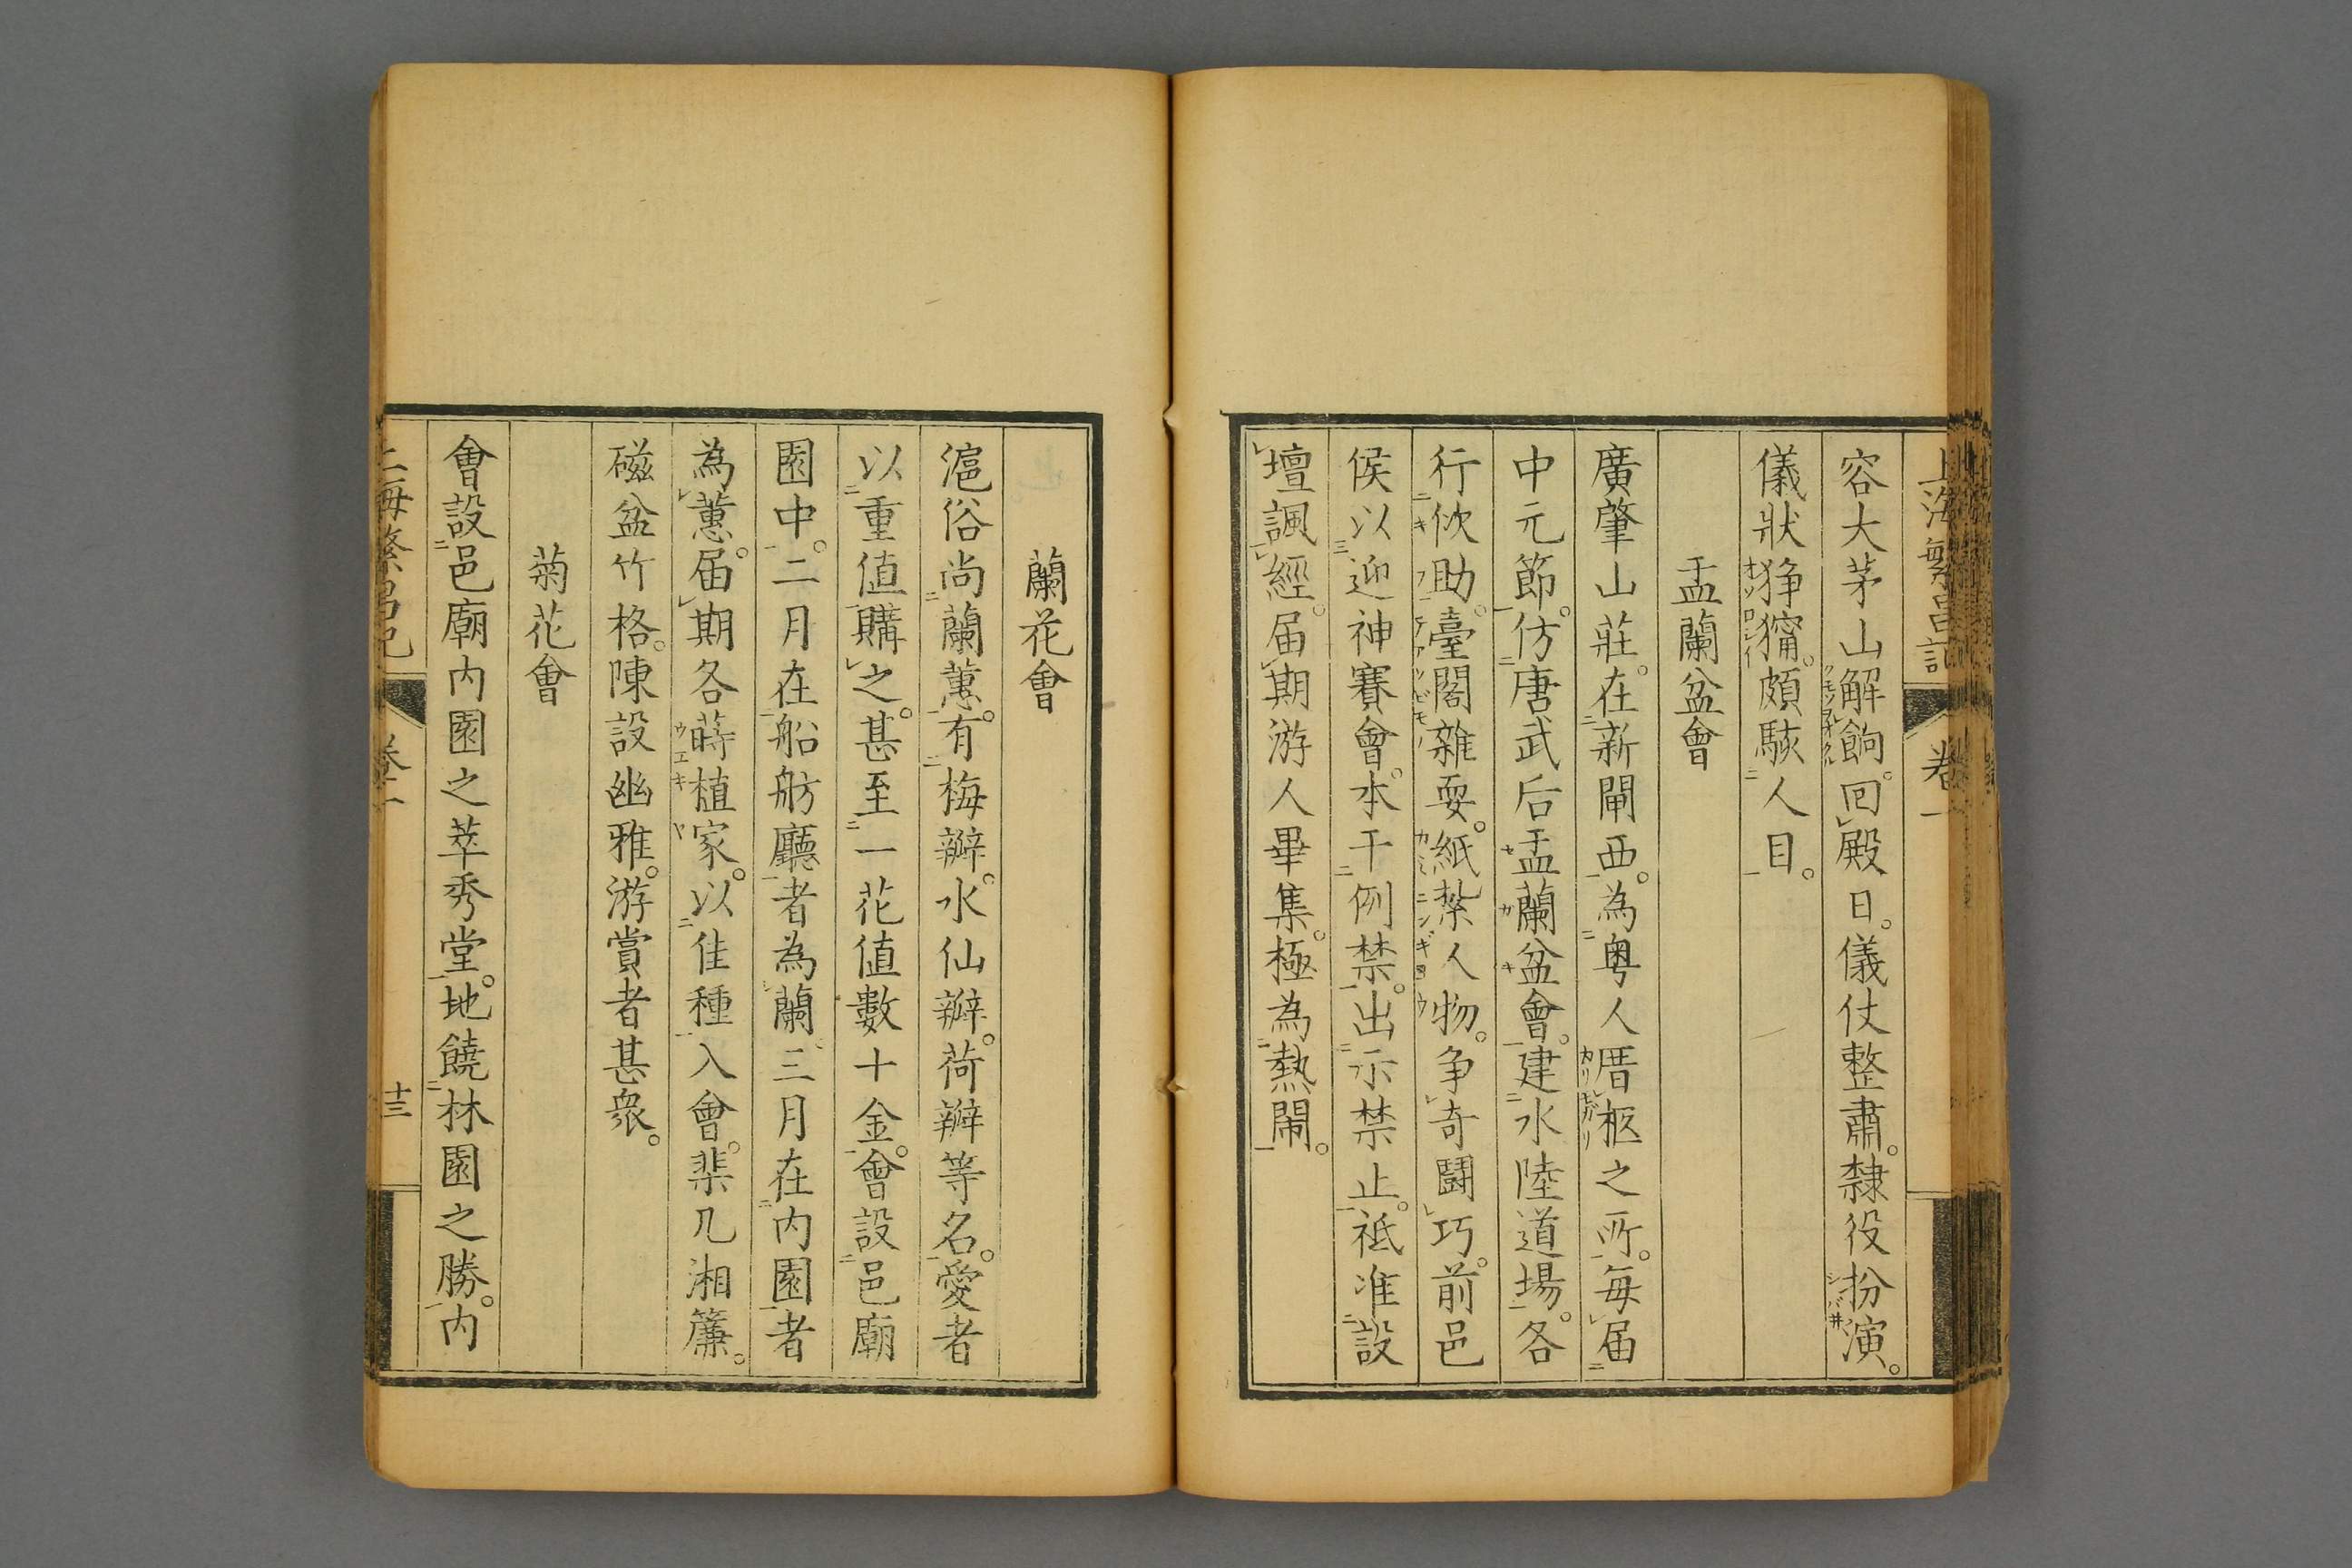 上海繁昌記 卷一
容大茅山解餉。回殿日。儀仗整肅。隸役扮演。
儀狀猙獰。頗駭人目。
盂蘭盆會
廣肇山莊。在新閘西。為粵人厝柩之所。每届
中元節。仿唐武后盂蘭盆會。建水陸道場。各
行佽助。臺閣雜耍。紙紮人物。争奇鬪巧。前邑
侯以迎神賽會。本干例禁。出示禁止。祗准設
壇諷經。届期游人畢集。極為熱鬧。
蘭花會
滬俗尚蘭蕙。有梅瓣。水仙瓣。荷瓣等名。愛者
以重值購之。甚至一花值數十金。會設邑廟
園中。二月在船舫廳者為蘭。三月在内園者
為蕙。届期各蒔植家。以佳種入會。棐几湘簾。
磁盆竹格。陳設幽雅。游賞者甚衆。
菊花會
會設邑廟内園之萃秀堂。地饒林園之勝。内
上海繁昌記 卷一 十三